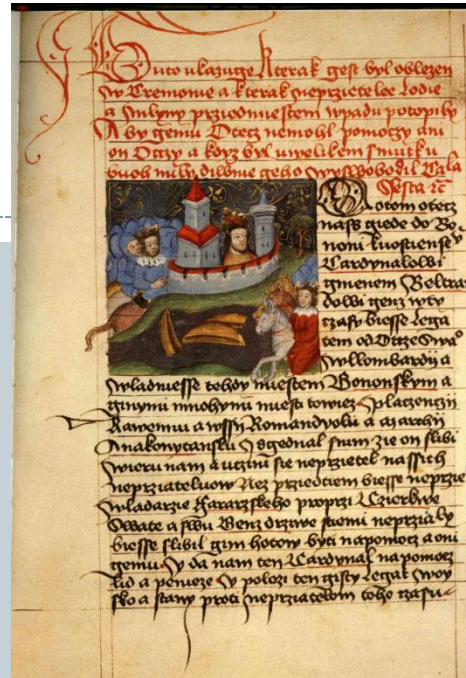 Tuto ukazuge kterak gest byl oblezen
w Cremonie a kterak neprzietelee lodie
a mlyny przied miestem wpadu potopily
A by gemu Otecz nemohl pomoczy ani
on Otczy a kdyz byl wwelikem smutku
buoh mily diwnie geho wyswobodil Cala
Sesta rč
Potom otecz
nass giede do Bo
noni kuostiensem
Cardynalowi
gmenem Beltra
dowi genz w ty
czasy biesse lega
tem od Otcze Swao
w llombardij a
wladniesse tehdy miestem Bononskym a
ginymi mnohymi miesti towiez Placenczij
Rawennu a wssy Romandyolu a marchij
Ankonytansku Y zgednal snim zie on slibi
wieru nam a uczini sie neprzietel nassich
neprziateluow Nez przied tiem biesse neprzie
wladarzie Fararzskeho proprzi Czierkwe
Swate a sku Benz drziwe stiemi neprziately
biesse slibil gim hotow byti napomocz a oni
gemu Y da nam ten Cardynal na pomocz
lid a penieze Y polozi ten gisty legat woy
sko a stany proti neprziatelom toho czasu